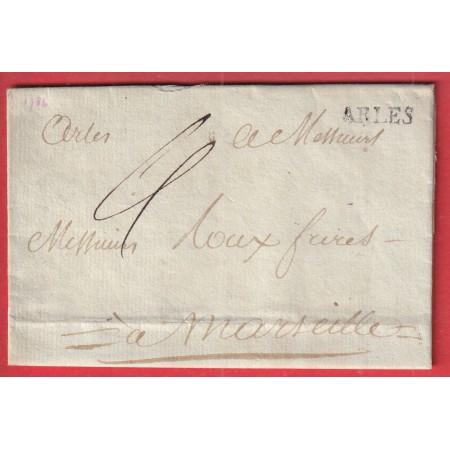 1786
ARLES
Arles
a Messieurs
4
Messieurs Roux freres
à Marseille